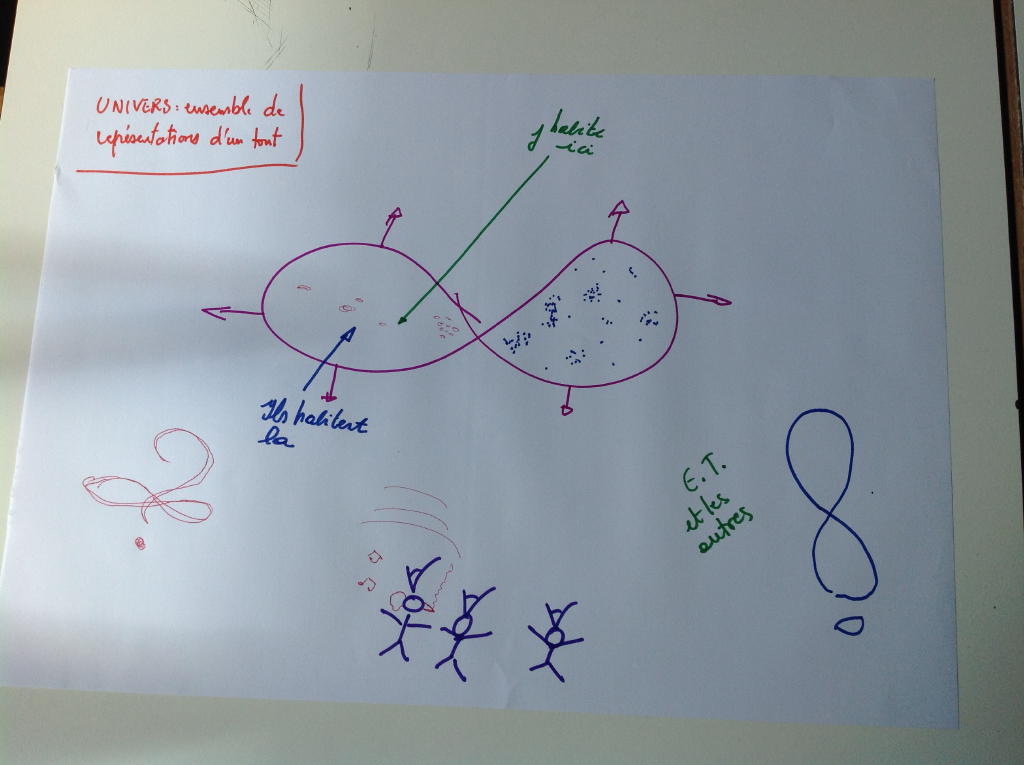 UNIVERS : ensemble de
représentations d'un tout
j'habite
ici
Ils habitent
la
E.T.
et les
autres